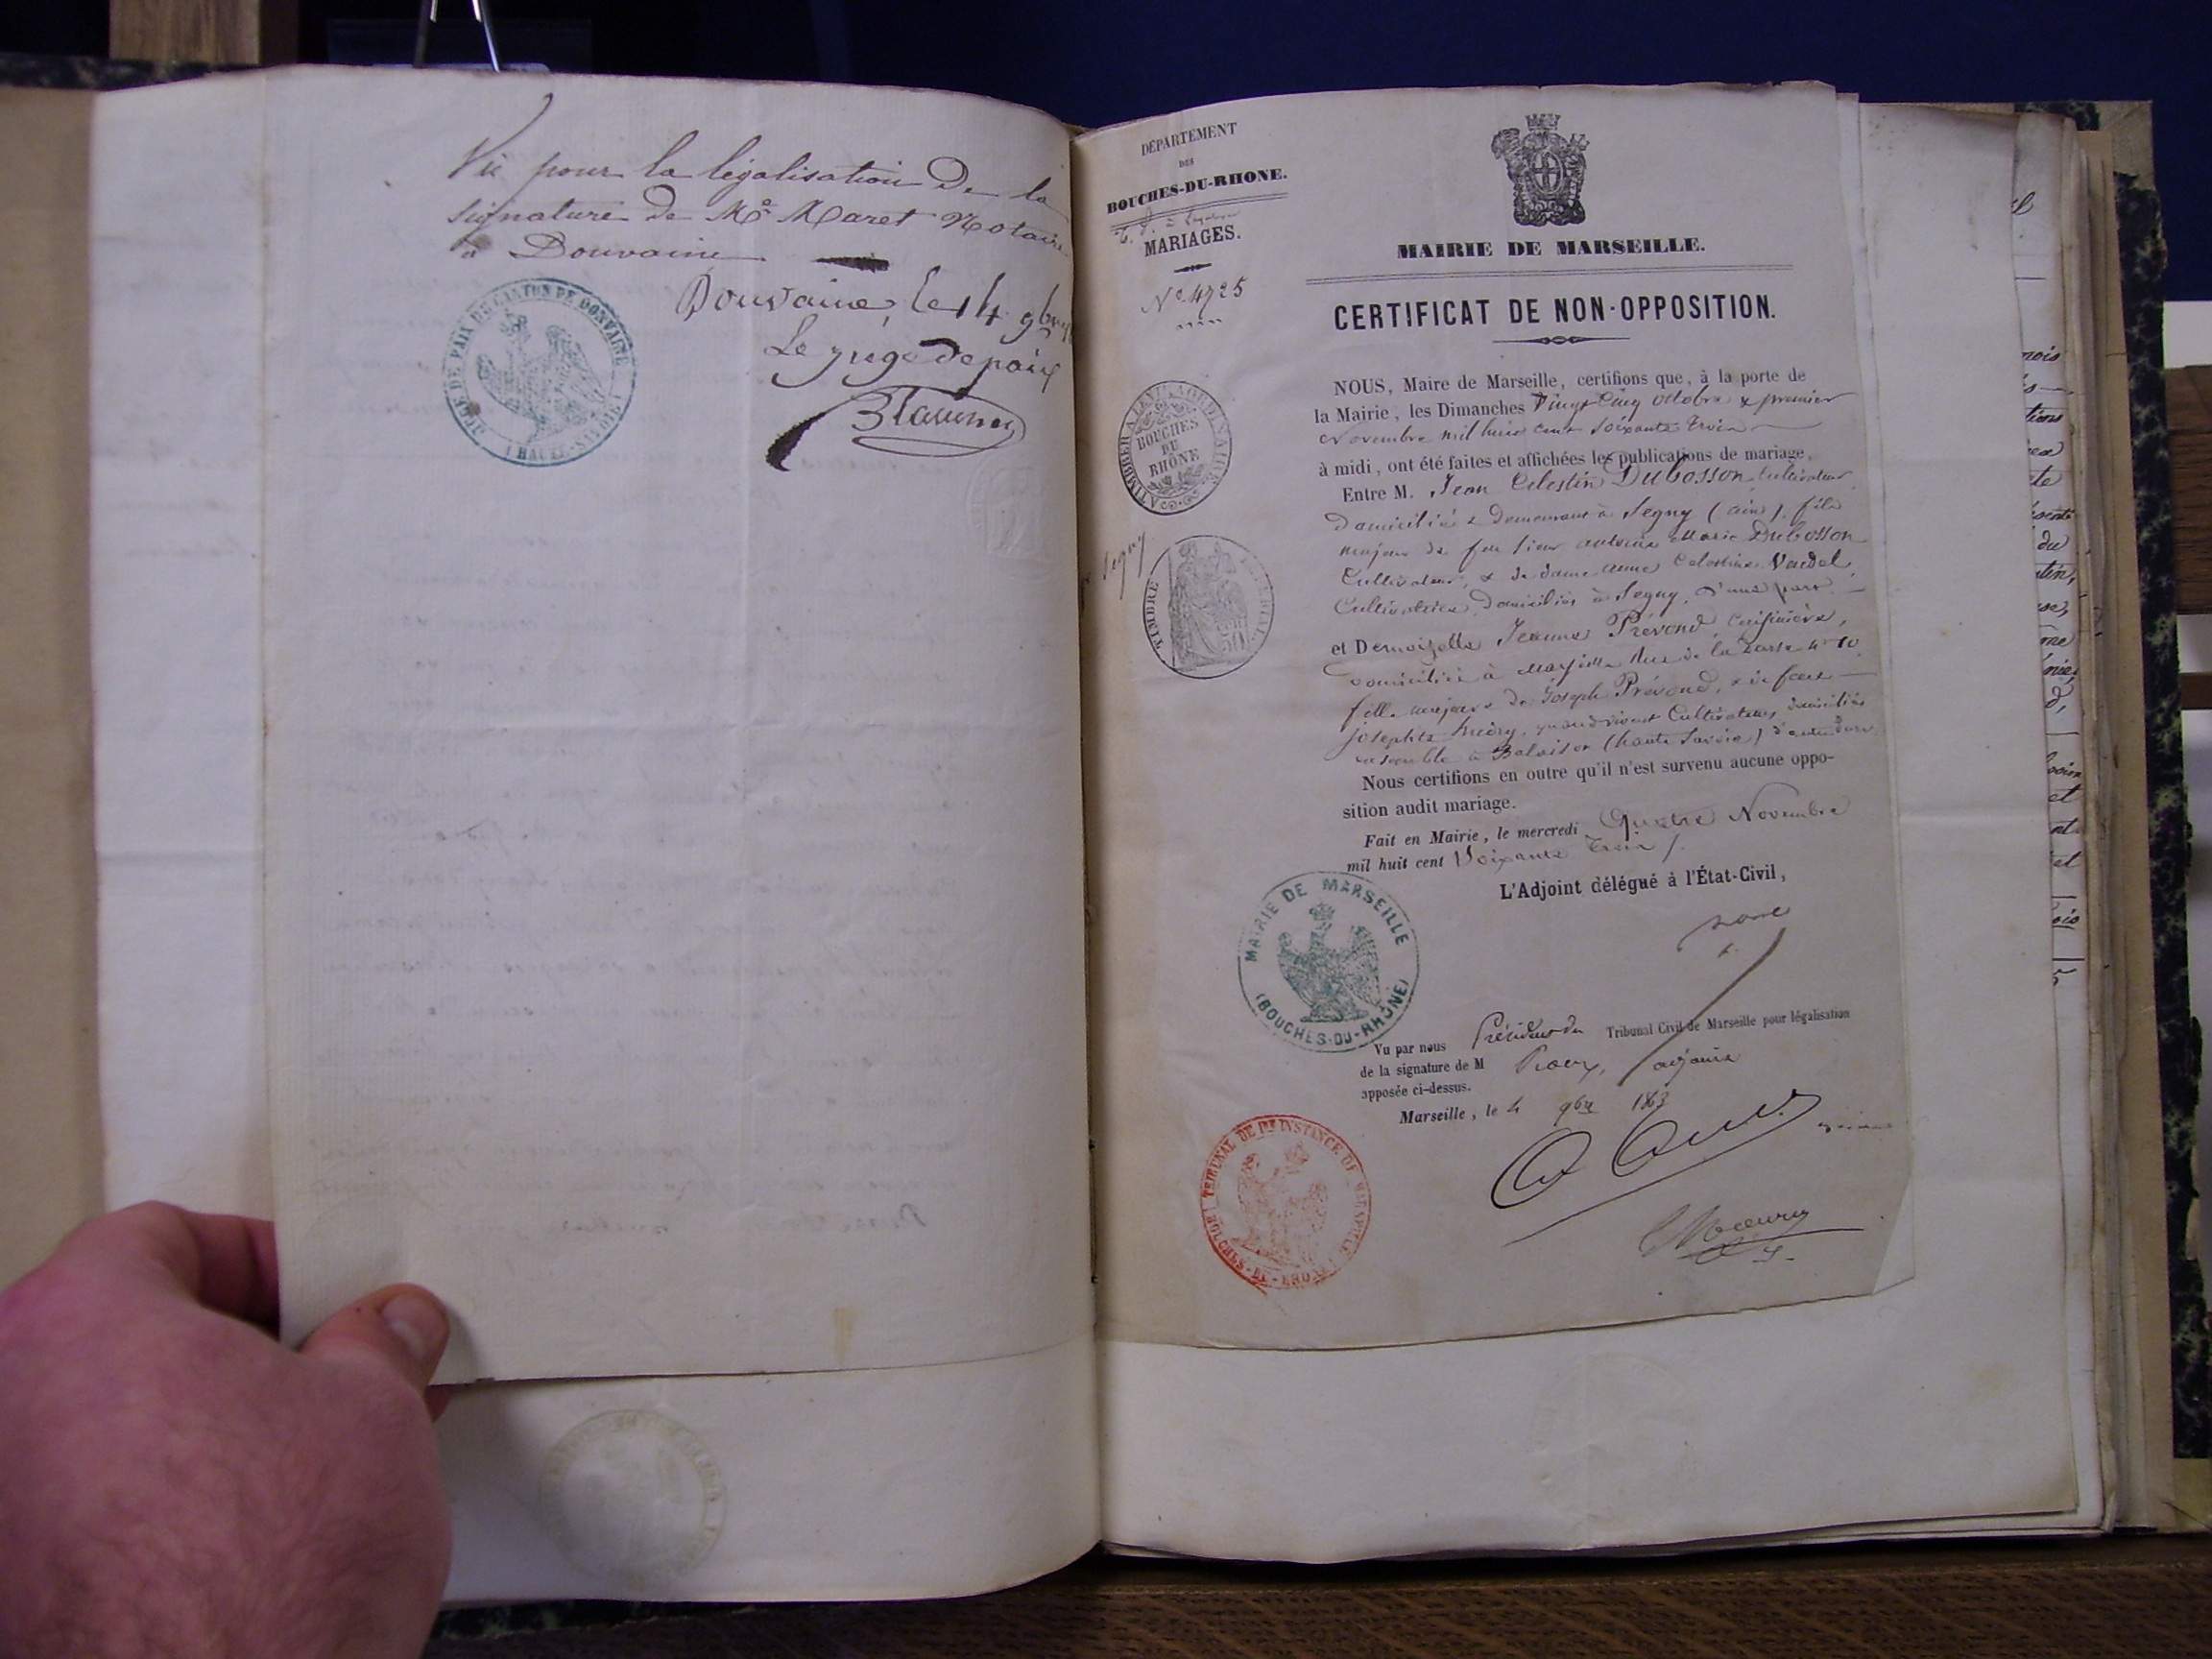 Vu pour la légalisation de la
signature de Me Maret Notaire
à Douvaine
Douvaine, le 14 9bre
Le juge de paix
JUGE DE PAIX DU CANTON DE DOUVAINE
(HAUTE-SAVOIE)
DÉPARTEMENT
DES
BOUCHES-DU-RHONE.
MARIAGES.
No 4725
A TIMBRER A L'EXTRAORDINAIRE
BOUCHES
DU
RHÔNE
Segny
TIMBRE IMPÉRIAL
50
MAIRIE DE MARSEILLE.
CERTIFICAT DE NON-OPPOSITION.
NOUS, Maire de Marseille, certifions que, à la porte de
la Mairie, les Dimanches Vingt Cinq octobre & premier
Novembre mil huit cent soixante trois
à midi, ont été faites et affichées les publications de mariage,
Entre M. Jean Celestin Dubosson Cultivateur
domicilié & demeurant à Segny (ain), fils
majeur de feu sieur antoine Marie Dubosson
Cultivateur, & de dame anne Celestine Vaudel,
Cultivatrice, domiciliés à Segny, d'une part
et Demoiselle Jeanne Prévond, Cuisinière,
domiciliée à Marseille Rue de la Darse no 10
fille majeure de Joseph Prévond, & de feue
Josephte quand vivant Cultivateurs, domiciliés
ensemble à Balaison (haute Savoie) d'autre part
Nous certifions en outre qu'il n'est survenu aucune oppo-
sition audit mariage.
Fait en Mairie, le mercredi Quatre Novembre
mil huit cent Soixante trois
L'Adjoint délégué à l'État-Civil,
MAIRIE DE MARSEILLE
(BOUCHES-DU-RHÔNE)
Vu par nous Président du Tribunal Civil de Marseille pour légalisation
de la signature de M Roux, adjoint
apposée ci-dessus.
Marseille, le 4 9bre 1863
TRIBUNAL DE 1re INSTANCE DE MARSEILLE
BOUCHES-DU-RHÔNE